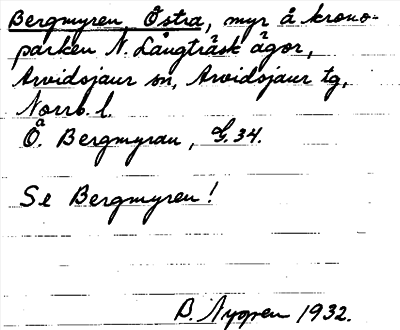 Bergmyren, Östra, myr å krono-
parken N. Långträsk ägor,
Arvidsjaur sn, Arvidsjaur tg,
Norrb. l.
Ö. Bergmyran, G. 34.
Se Bergmyren!
B. Nygren 1932.